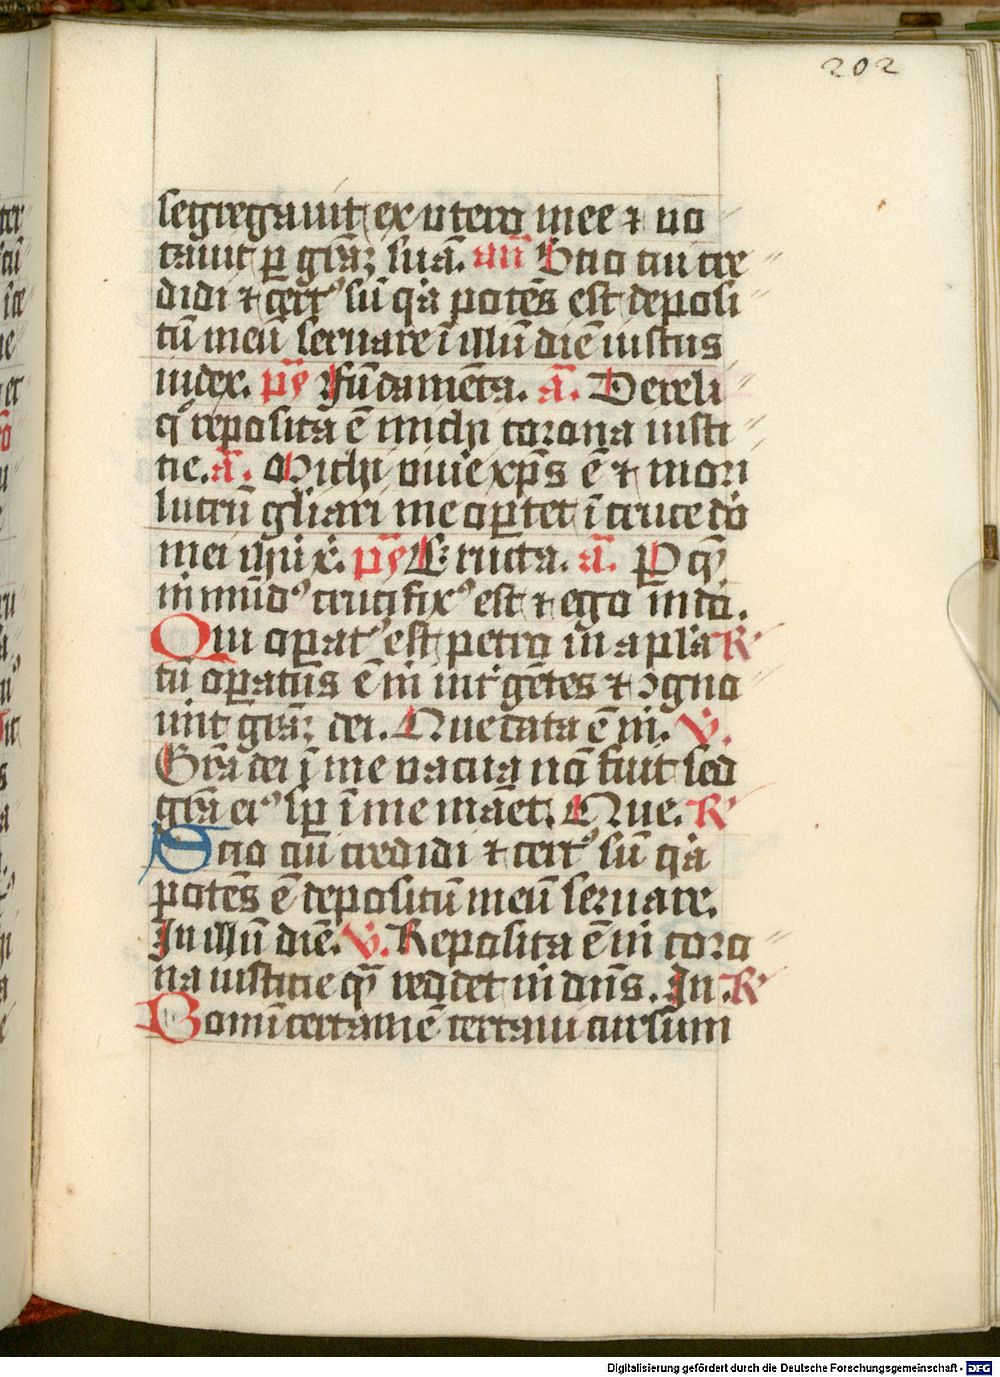 202
segregauit ex utero mee ⁊ uo
cauit ꝑ grã̄ꝫ suã. añ Scio cui cre
didi ⁊ cert᷒ sũ qͥa potẽs est deposi
tũ meũ seruare ĩ illũ diẽ iustus
iudex. pͫs Fũdamẽta. ã. De reli
qͦ reposita ẽ michi corona iusti
tie. ã. Michi viuẽ xp̃s ẽ ⁊ mori
lucrũ gl̃iari me oꝑtet ĩ cruce dõ
mei ihũ x̃. pͫs Eructa. ã. P quẽ
m̃ mũd᷒ crucifix᷒ est ⁊ ego mũdo.
Qui oꝑat᷒ est petro in apl̃a R̷
tũ oꝑatus ẽ m̃ int̃ gẽtes ⁊ ꝯgno
uit grã̄ꝫ dei. Que data ẽ m̃. V̷.
Grã dei ĩ me uacua nõ fuit sed
grã ei᷒ sꝑ ĩ me mãet. Que. R̷
Scio cui credidi ⁊ cert᷒ sũ qͥa
potẽs ẽ depositũ meũ seruare.
In illũ diẽ. V̷. Reposita ẽ m̃ coro
na iusticie quã reddet m̃ dñs. In. R̷
Bonũ certamẽ certaui cursum
Digitalisierung gefördert durch die Deutsche Forschungsgemeinschaft - DFG